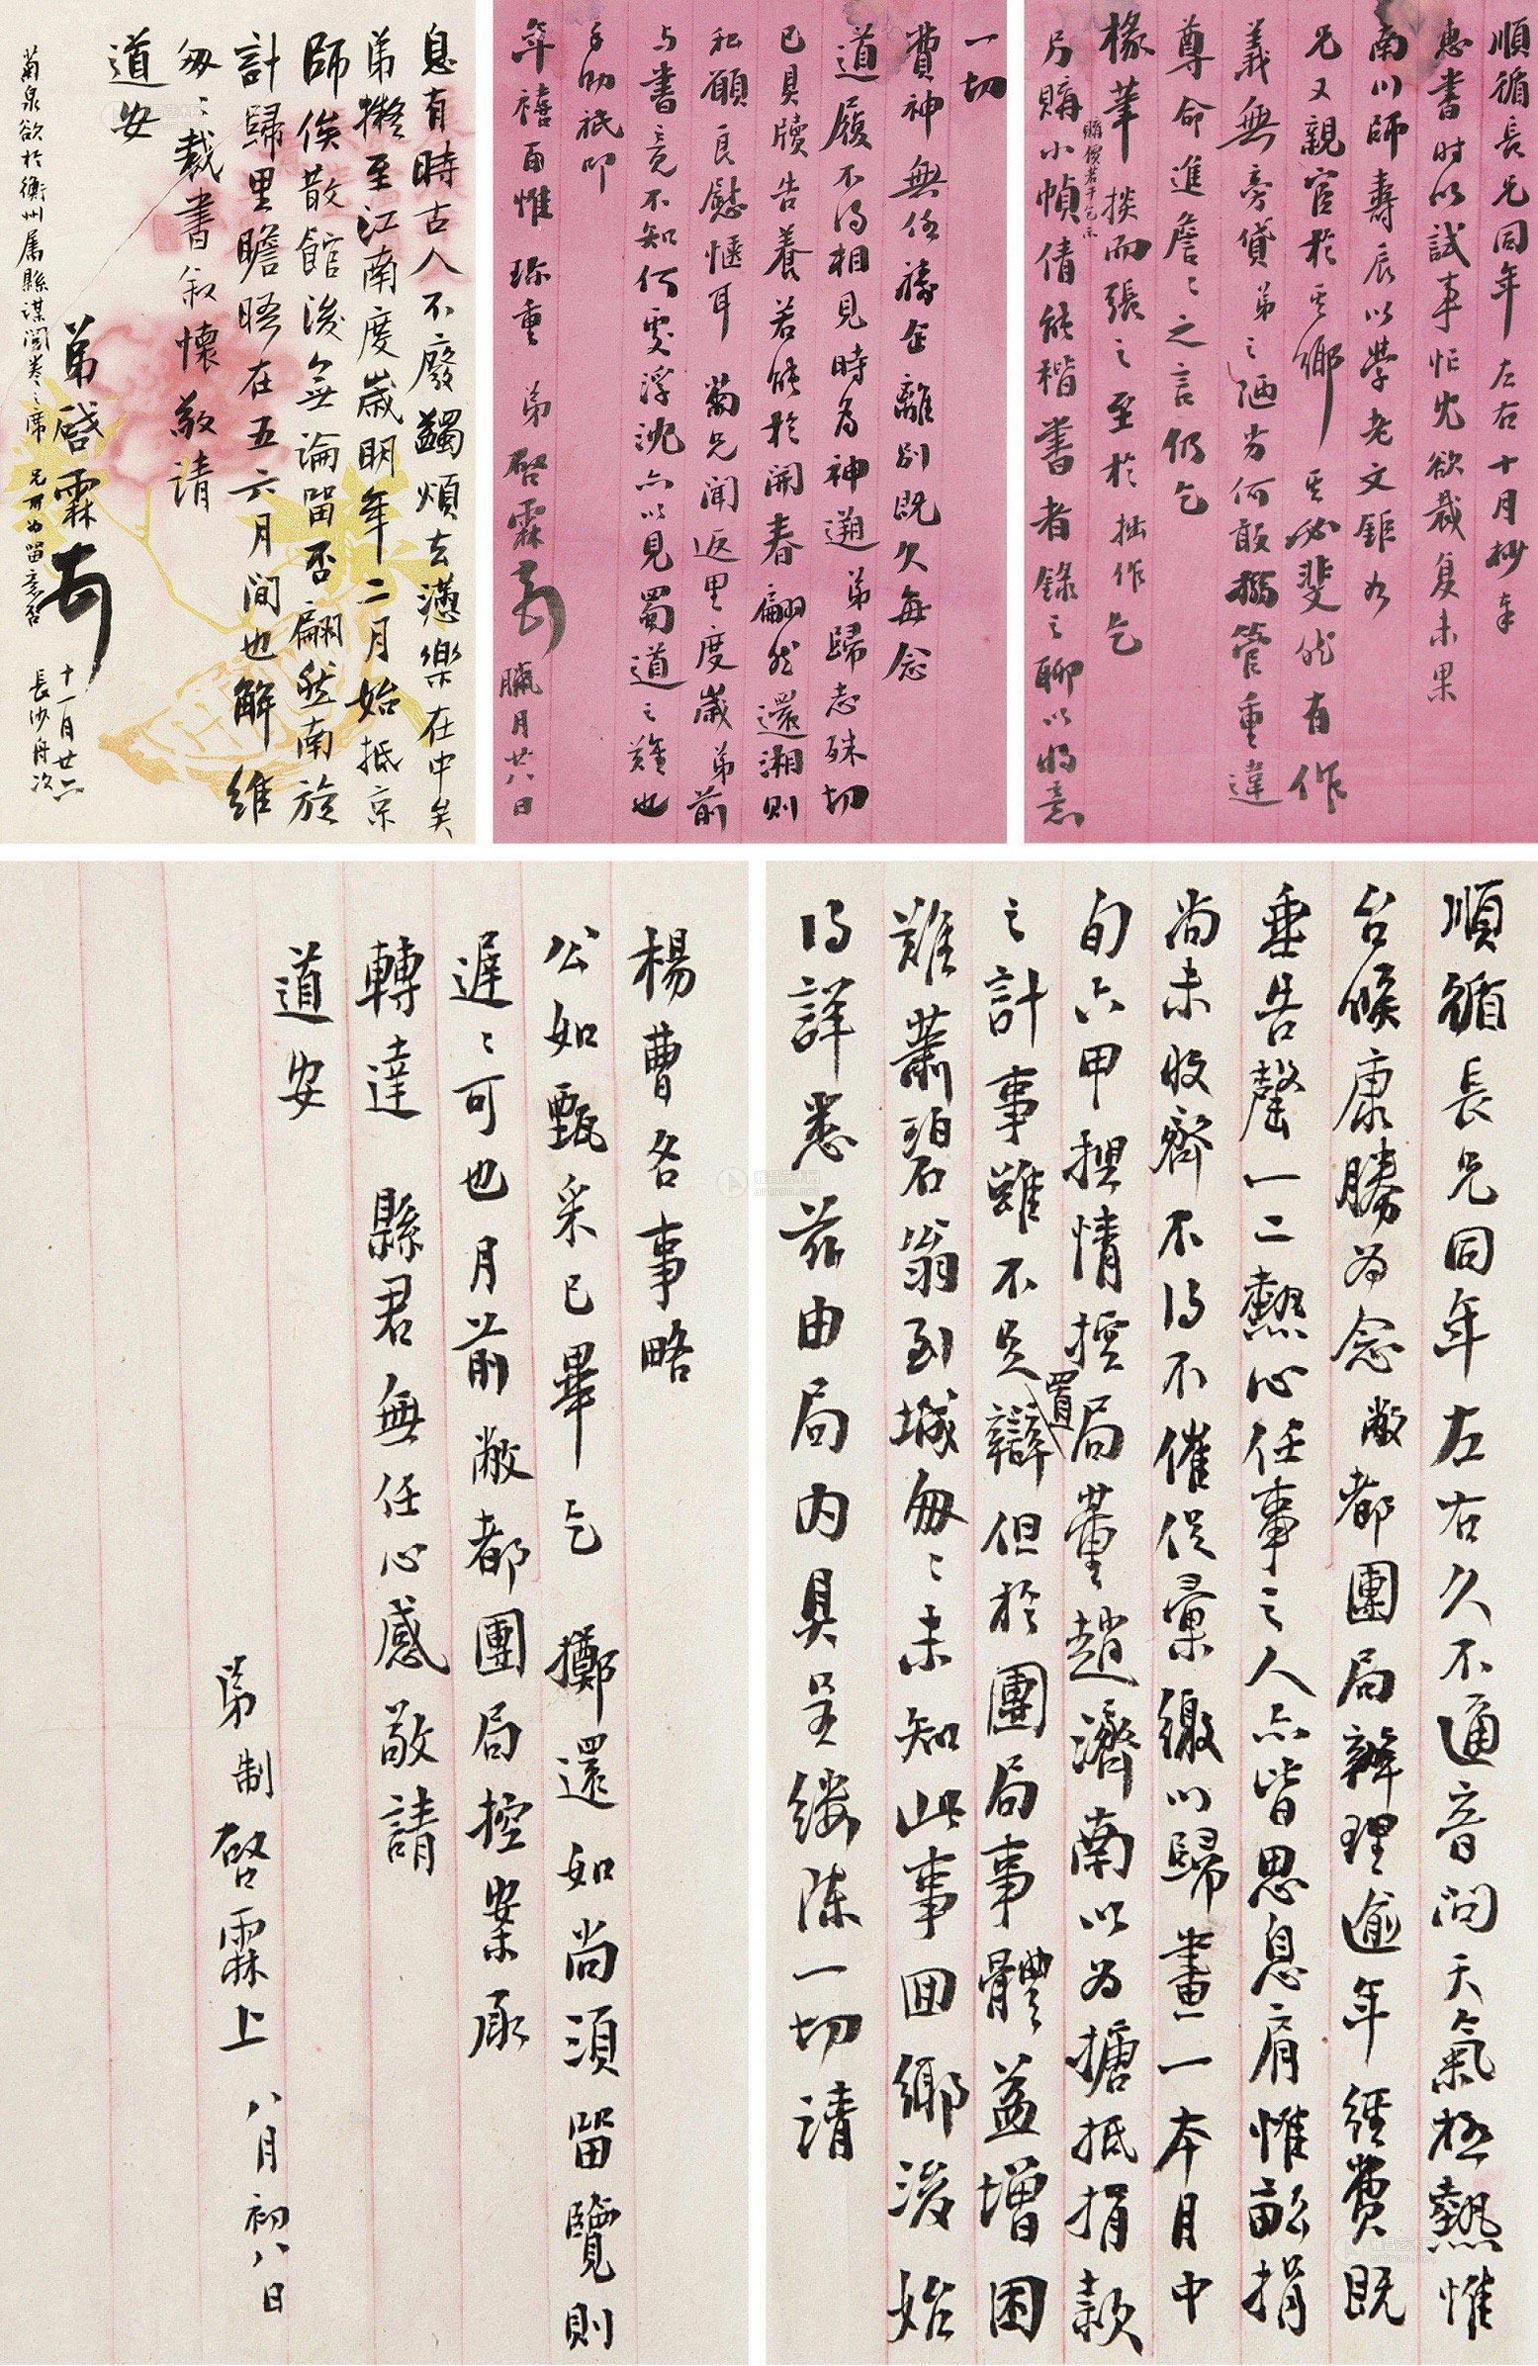 順循長兄同年左右十月抄奉
惠書時以試事忙欲裁復未果
南川師壽辰以學老文鉅如
兄又親官於其鄉其必斐然有作
義無旁貸弟之陋劣何敢搦管重違
尊命進詹詹之言仍乞
椽筆掞而張之至於拙作乞
另購小幀倩能楷書者錄之聊以將意
購價若干乞示
一切
費神無任禱企離別既久每念
道履不得相見時為神遡弟歸志殊切
已具牘告養若能於開春翩然還湘則
私願良慰愜耳菊兄聞返里度歲弟前
與書竟不知何處浮沈亦以見蜀道之難也
手助祇叩
年禧百惟珍重弟啓霖頓臘月廿八日
息有時古人不廢蠲煩去懣樂在中矣
弟擬至江南度歲明年二月始抵京
師俟散館後無論留否翩然南旋
計歸里瞻晤在五六月間也解維
匆匆裁書敘懷敬請
道安
弟啓霖頓
十一月廿六
長沙舟次
菊泉欲於衡州屬縣謀閱卷之席兄可為留意否
順循長兄同年左右久不通音問天氣極熱惟
台候康勝為念敝都團局辦理逾年經費既
垂告罄一二熱心任事之人亦皆思息肩惟畝捐
尚未收齊不得不催促彙繳以歸畫一本月中
旬六甲捏情控局董趙濟南以為搪抵捐款
之計事雖不足置辯但於團局事體益增困
難蕭碧翁到城匆匆未知此事回鄉後始
得詳悉茲由局內具呈縷陳一切請
楊曹各事略
公如甄采已畢乞擲還如尚須留覽則
遲遲可也月前敝都團局控案承
轉達縣君無任心感敬請
道安
弟制啓霖上八月初八日